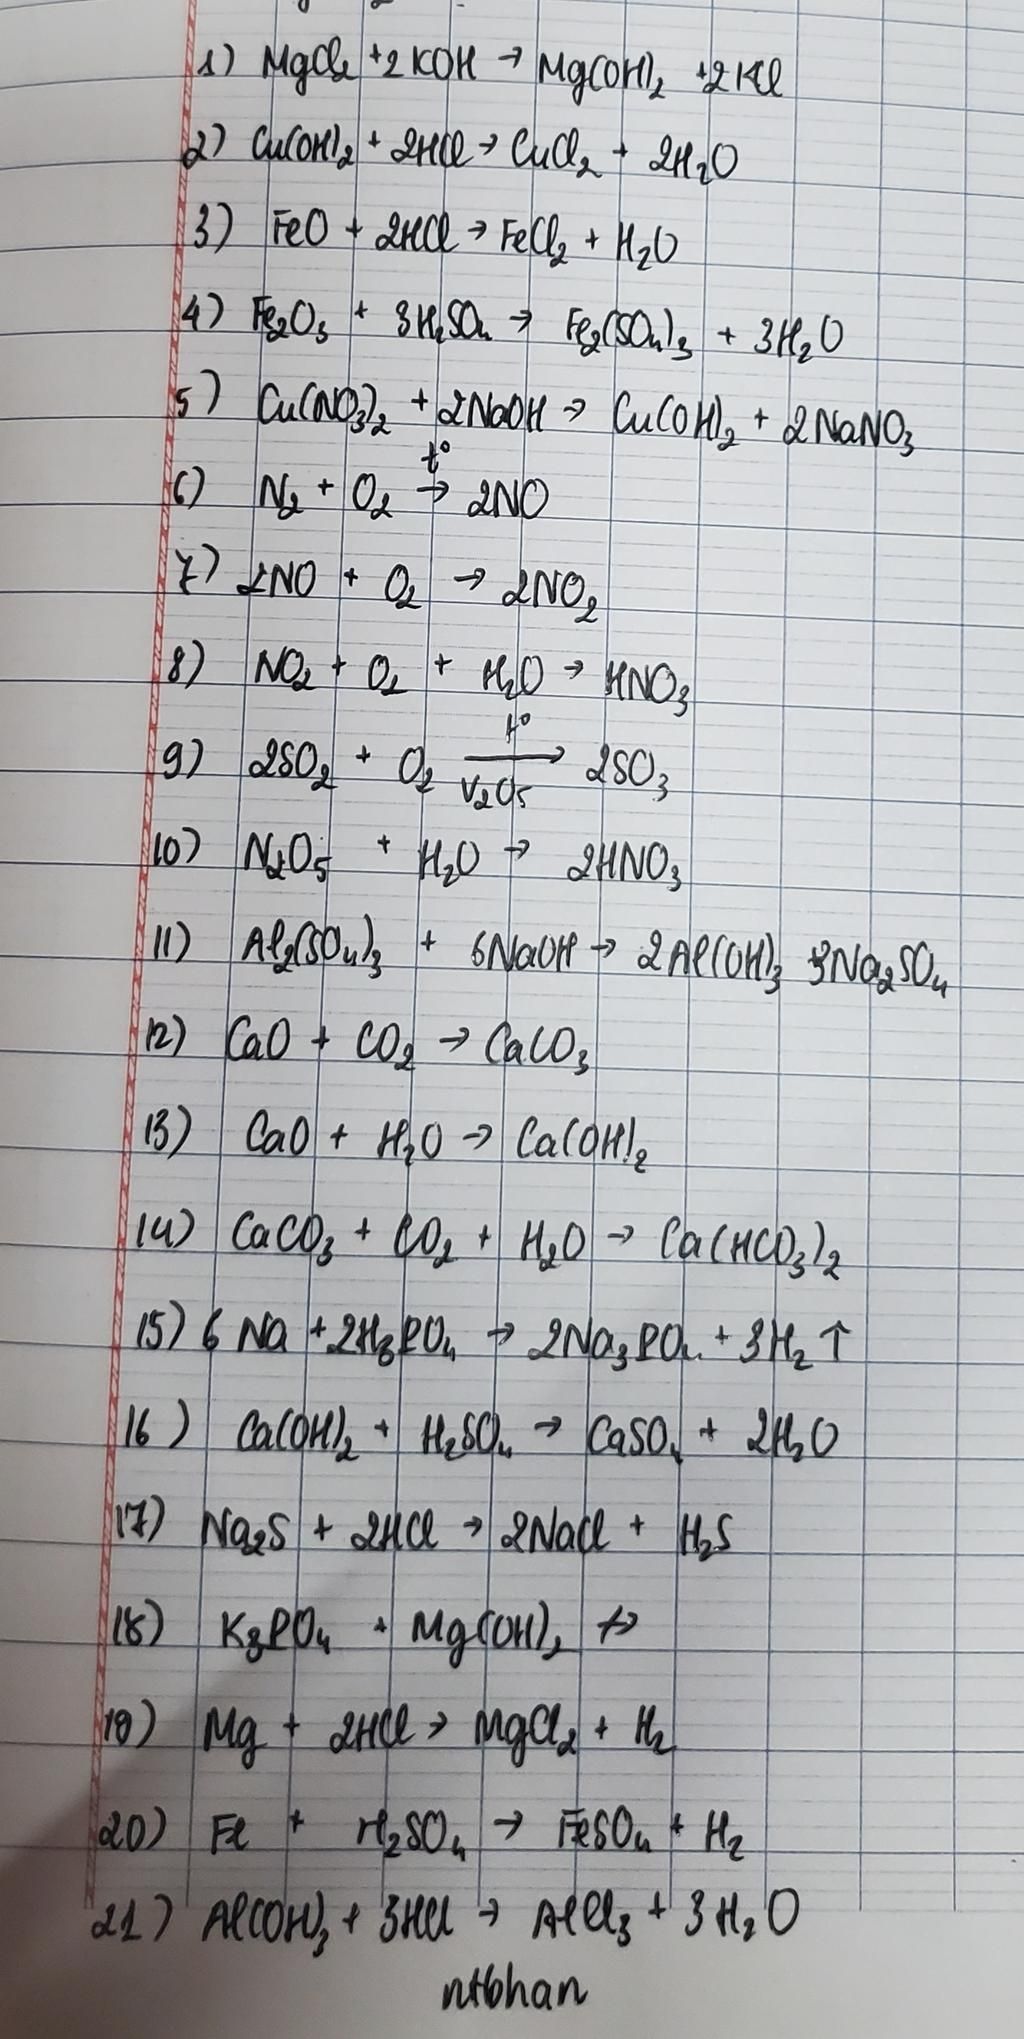 1) MgCl₂ +2KOH → Mg(OH)₂ +2KCl
2) Cu(OH)₂ + 2HCl → CuCl₂ + 2H₂O
3) FeO + 2HCl → FeCl₂ + H₂O
4) Fe₂O₃ + 3H₂SO₄ → Fe₂(SO₄)₃ + 3H₂O
5) Cu(NO₃)₂ + 2NaOH → Cu(OH)₂ + 2NaNO₃
t°
6) N₂ + O₂ → 2NO
7) 2NO + O₂ → 2NO₂
8) NO₂ + O₂ + H₂O → HNO₃
t°
9) 2SO₂ + O₂ → 2SO₃
V₂O₅
10) N₂O₅ + H₂O → 2HNO₃
11) Al₂(SO₄)₃ + 6NaOH → 2Al(OH)₃ 3Na₂SO₄
12) CaO + CO₂ → CaCO₃
13) CaO + H₂O → Ca(OH)₂
14) CaCO₃ + CO₂ + H₂O → Ca(HCO₃)₂
15) 6 Na +2H₃PO₄ → 2Na₃PO₄ + 3H₂ ↑
16) Ca(OH)₂ + H₂SO₄ → CaSO₄ + 2H₂O
17) Na₂S + 2HCl → 2NaCl + H₂S
18) K₃PO₄ + Mg(OH)₂ ↛
19) Mg + 2HCl → MgCl₂ + H₂
20) Fe + H₂SO₄ → FeSO₄ + H₂
21) Al(OH)₃ + 3HCl → AlCl₃ + 3H₂O